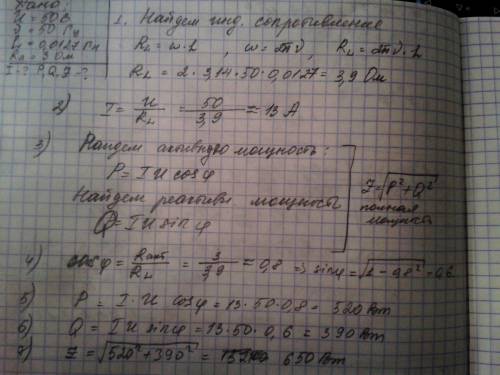 Дано:
U = 50 В
ν = 50 Гц
L = 0,0127 Гн
Rа = 3 Ом
I-? P, Q, Z-?
1. Найдем инд. сопротивление
R_L = ω·L , ω = 2πν , R_L = 2πν·L
R_L = 2·3,14·50·0,0127 = 3,9 Ом
2) I = U/R_L = 50/3,9 = 13 А
3) Найдем активную мощность:
P = I U cosφ
Найдем реактивн мощность
Q = I U sinφ
Z = √(P²+Q²)
полная
мощность
4) cosφ = Rакт/R_L = 3/3,9 = 0,8 => sinφ = √(1-0,8²) = 0,6
5) P = I · U cosφ = 13·50·0,8 = 520 Вт
6) Q = I U sinφ = 13·50·0,6 = 390 Вт
7) Z = √(520²+390²) = 650 Вт